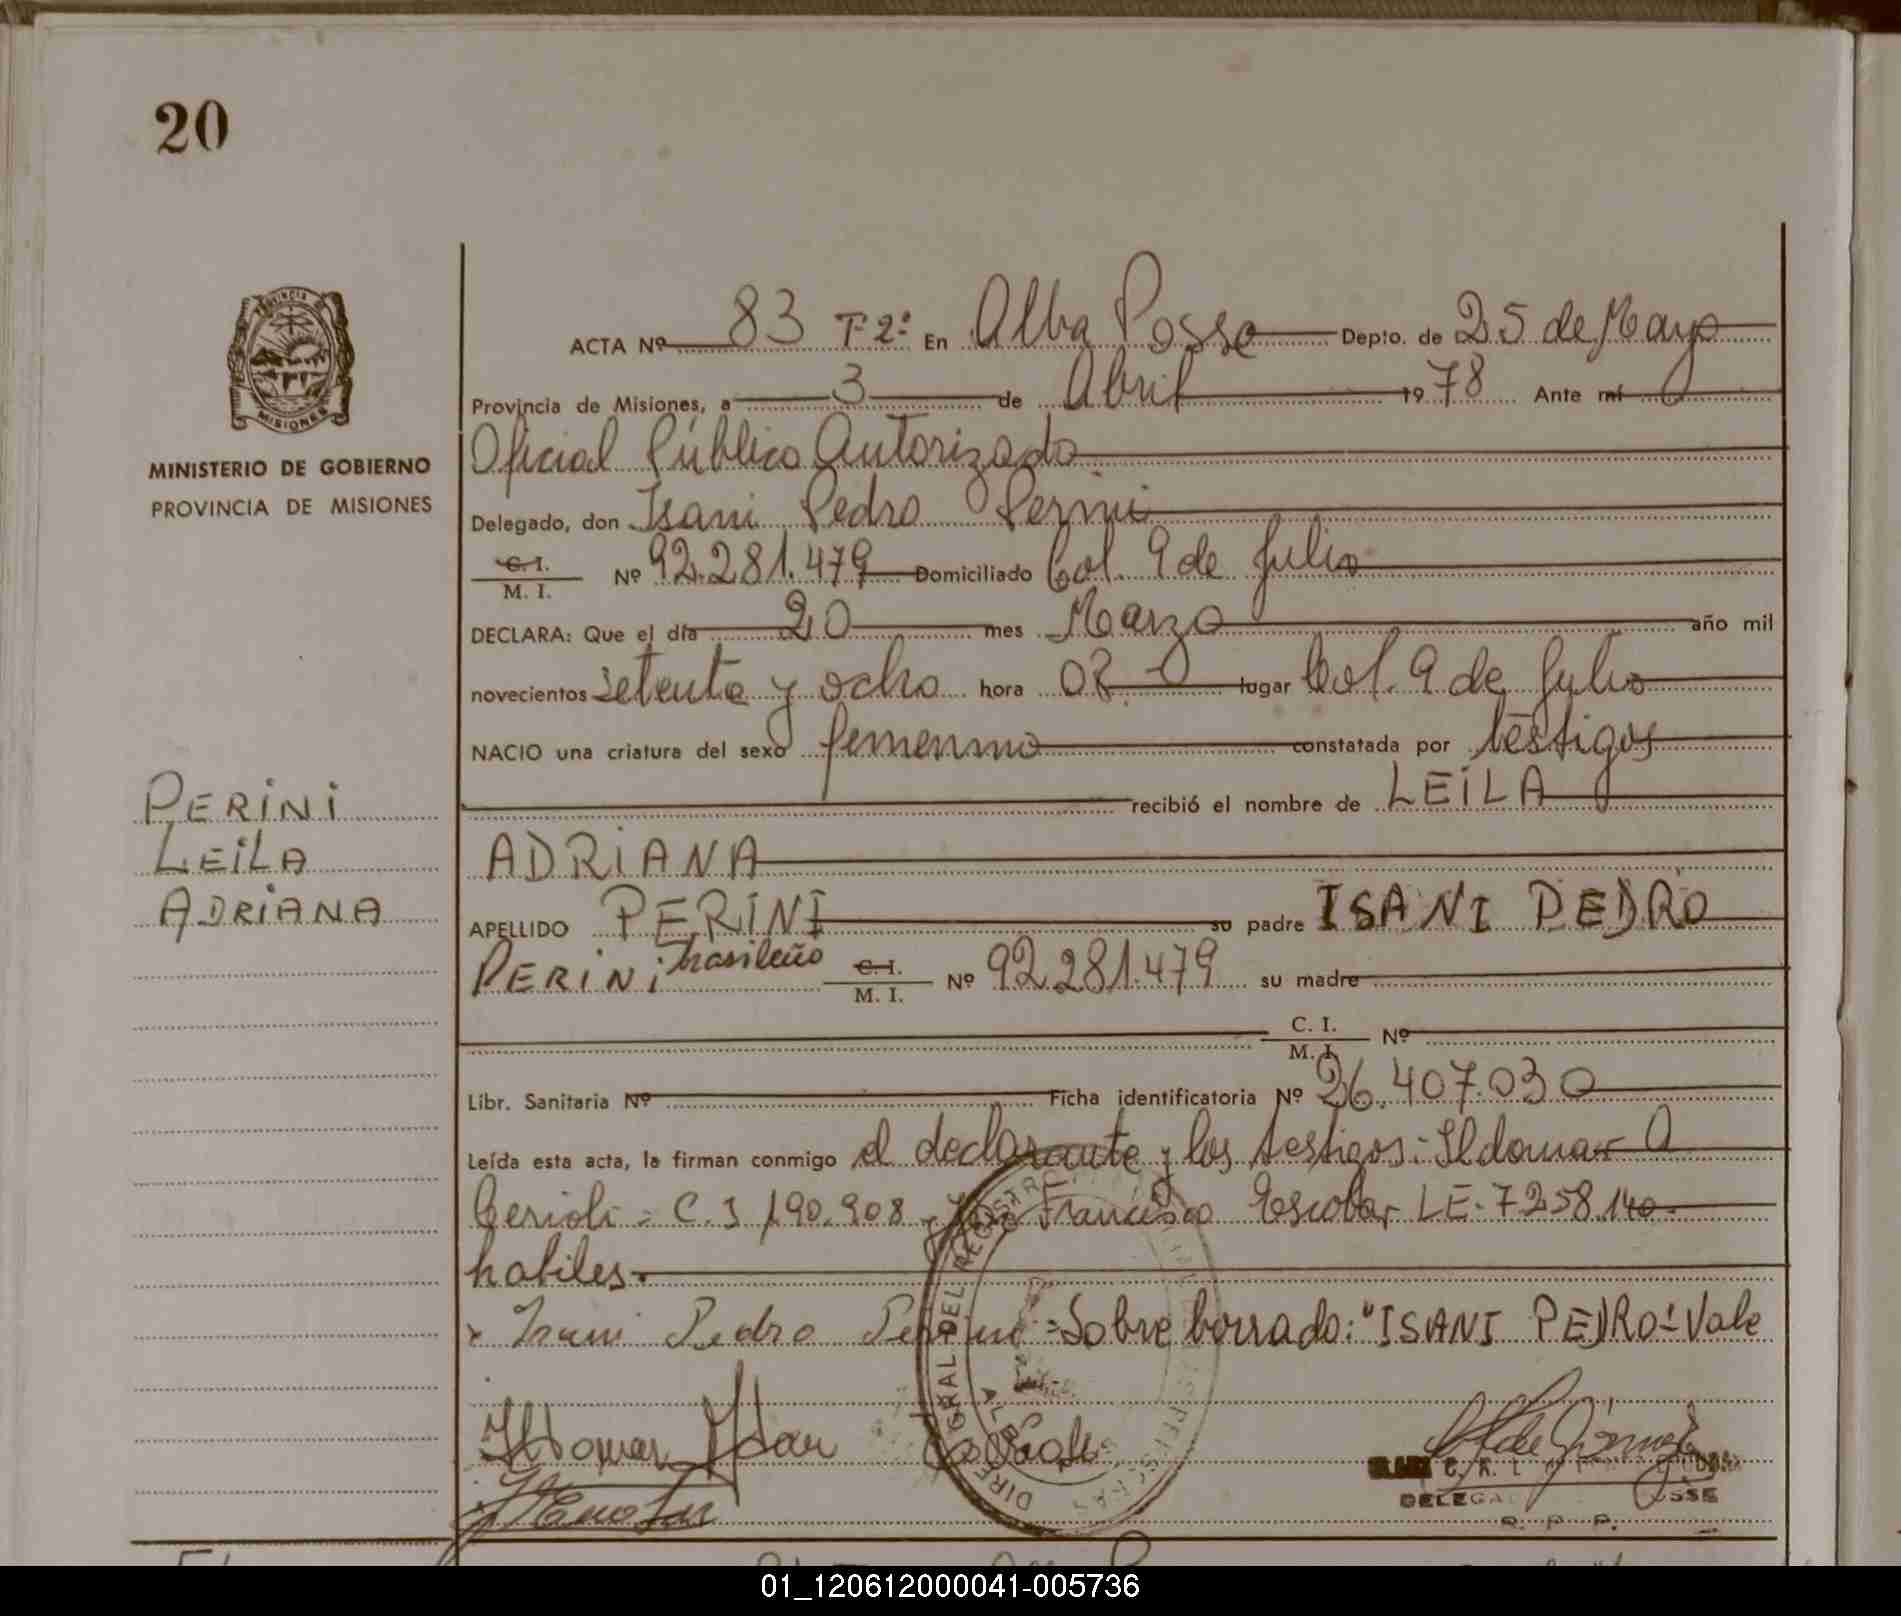 20
MINISTERIO DE GOBIERNO
PROVINCIA DE MISIONES
PERINI
LEILA
ADRIANA
ACTA Nº 83 Tº 2º En Alba Posse Depto. de 25 de Mayo
Provincia de Misiones, a 3 de Abril 1978 Ante mí
Oficial Público Autorizado
Delegado, don Isani Pedro Perini
C. I. / M. I. Nº 92.281.479 Domiciliado Col. 9 de Julio
DECLARA: Que el día 20 mes Marzo año mil
novecientos setenta y ocho hora 03 lugar Col. 9 de Julio
NACIO una criatura del sexo femenino constatada por testigos
recibió el nombre de LEILA
ADRIANA
APELLIDO PERINI su padre ISANI PEDRO
PERINI brasileño C. I. / M. I. Nº 92.281.479 su madre
C. I. / M. I. Nº
Libr. Sanitaria Nº Ficha identificatoria Nº 26.407.030
Leída esta acta, la firman conmigo el declarante y los testigos: Ildomar A
C.I 190.908 y Francisco Escobar LE. 7258.140
habiles.
Isani Pedro Perini = Sobre borrado: "ISANI PEDRO" Vale
Ildomar
DELEGA
R. P. P.
01_120612000041-005736